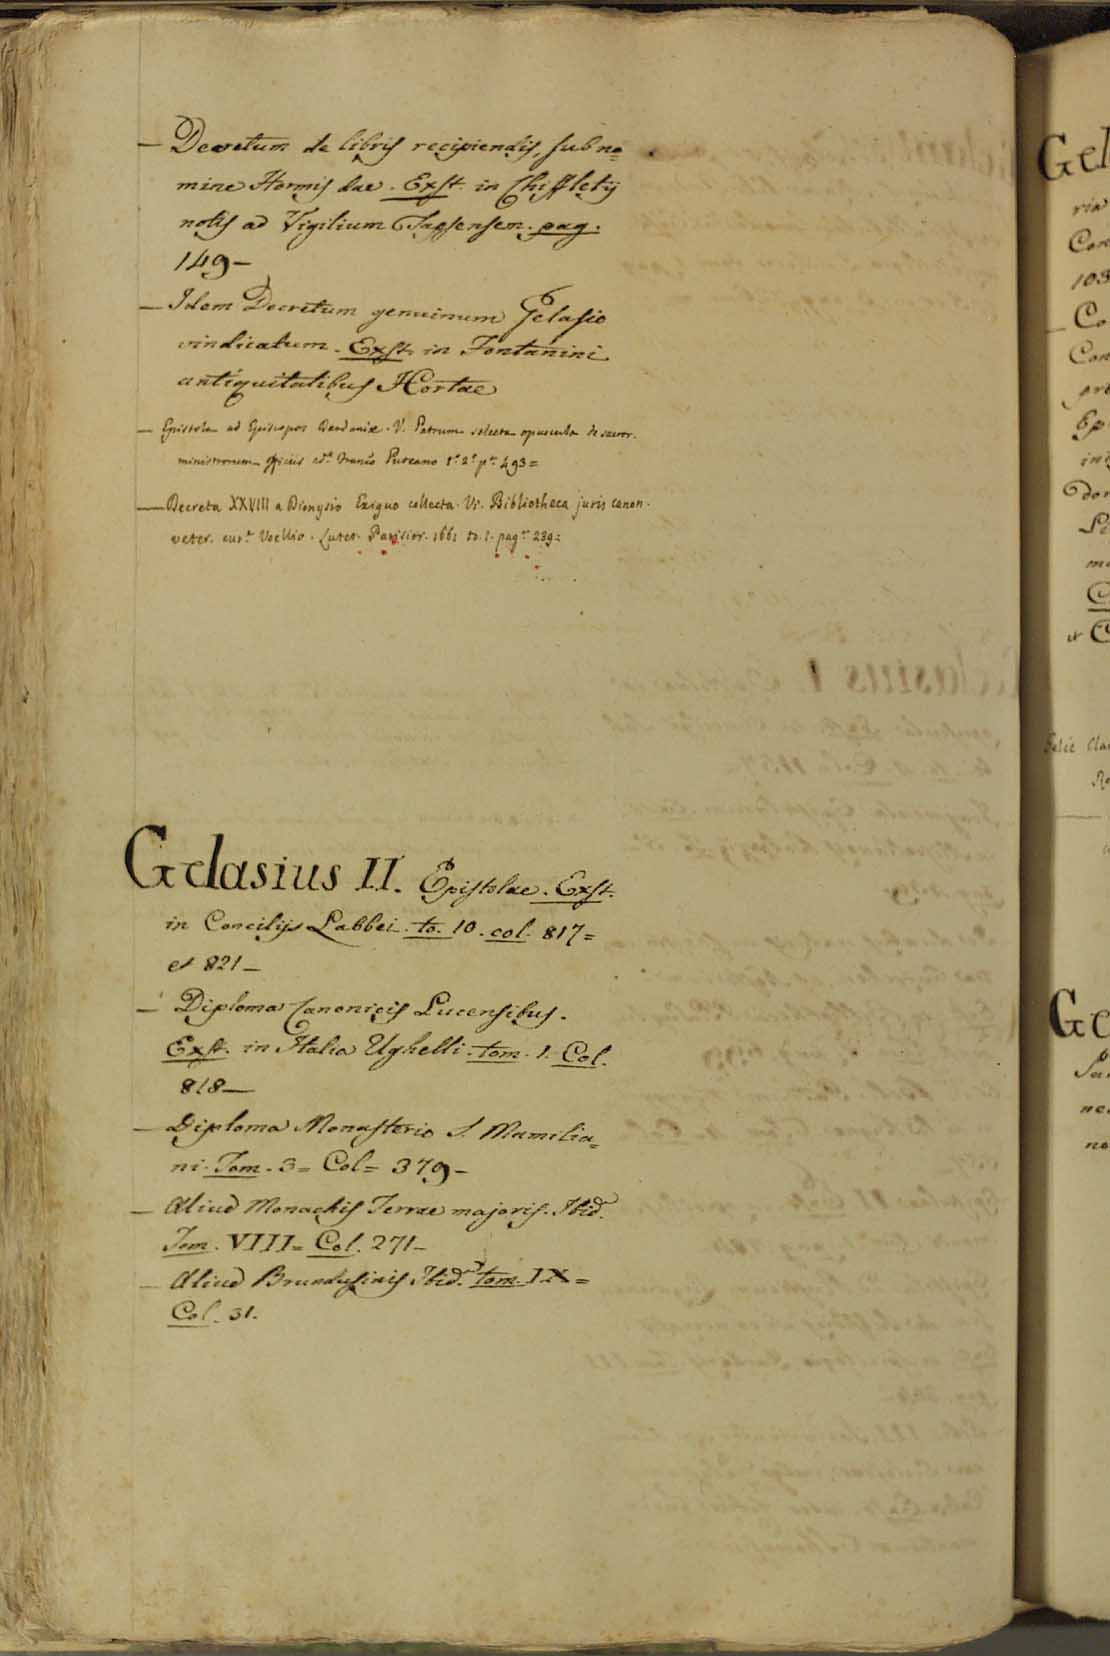 — Decretum de libris recipiendis, sub no=
mine Hormis dae. Exst. in Chiffletij
notis ad Vigilium Tapsensem. pag.
149—
— Idem Decretum genuinum Gelasio
vindicatum. Exst. in Fontanini
antiquitatibus Hortae
— Epistola ad Episcopos Dardaniae. V. Patrum selecta opuscula de sacror.
ministrorum officiis ed.ª 493=
— Decreta XXVIII a Dionysio Exiguo collecta. Vi. Bibliotheca juris canon.
veter. cur.ᵉ Voellio. Lutet. Parisior. 1661 to. 1. pag.ᵃ 239=
Gelasius II. Epistolae. Exst.
in Concilijs Labbei. to. 10. col. 817=
et 821—
— Diploma Canonicis Lucensibus.
Exst. in Italia Ughelli. tom. 1. Col.
818—
— Diploma Monasterio S. Mamilia=
ni. Tom. 3= Col= 379—
— Aliud Monachis Terrae majoris. Ibid.
Tom. VIII= Col. 271—
— Aliud Brundusinis Ibid. tom. IX=
Col. 31.
Gel
Con
103
— Co
Con
pro
Ep
Ge